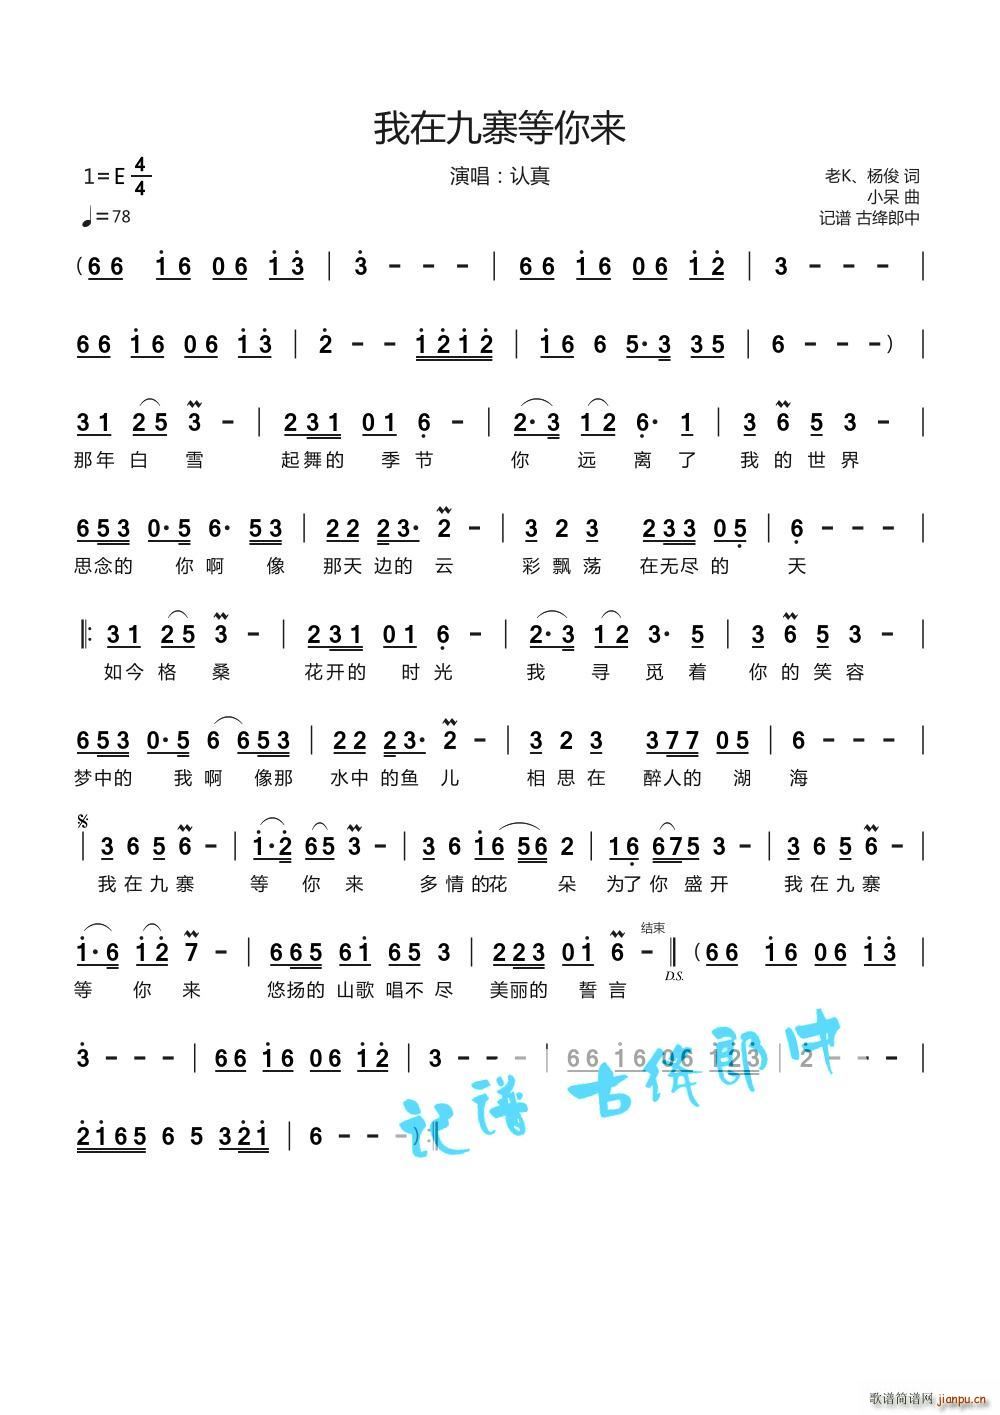 我在九寨等你来
1=E 4/4
演唱：认真
老K、杨俊 词
小呆 曲
♩=78
记谱 古绛郎中
(66 i6 06 i3̇ | 3̇ - - - | 66 i6 06 i2̇ | 3 - - - |
66 i6 06 i3̇ | 2̇ - - i2̇i2̇ | i6 6 5·3 35 | 6 - - - ) |
31 25 3 - | 231 01 6̣ - | 2·3 12 6̣· 1 | 3 6 5 3 - |
那年白雪 起舞的季节 你远离了我的世界
653 0·5 6· 53 | 22 23· 2 - | 3 2 3 233 05̣ | 6̣ - - - |
思念的你啊像那天边的云彩飘荡在无尽的天
‖: 31 25 3 - | 231 01 6̣ - | 2·3 12 3· 5 | 3 6 5 3 - |
如今格桑 花开的时光 我寻觅着你的笑容
653 0·5 6 653 | 22 23· 2 - | 3 2 3 377 05 | 6 - - - |
梦中的我啊像那水中的鱼儿相思在醉人的湖海
| 3 6 5 6 - | i·2̇ 65 3 - | 3 6 i6 56 2 | 16̣ 675 3 - | 3 6 5 6 - |
我在九寨等你来 多情的花朵为了你盛开 我在九寨
结束
i·6 i2̇ 7 - | 665 6i 65 3 | 223 0i 6 - ‖ (66 i6 06 i3̇ |
D.S.
等你来 悠扬的山歌唱不尽美丽的誓言
3̇ - - - | 66 i6 06 i2̇ | 3 - - - | 66 i6 06 i2̇3̇ | 2̇ - - - |
2̇i65 6 5 32̇i | 6 - - - ) :‖
记谱 古绛郎中
歌谱简谱网 jianpu.cn